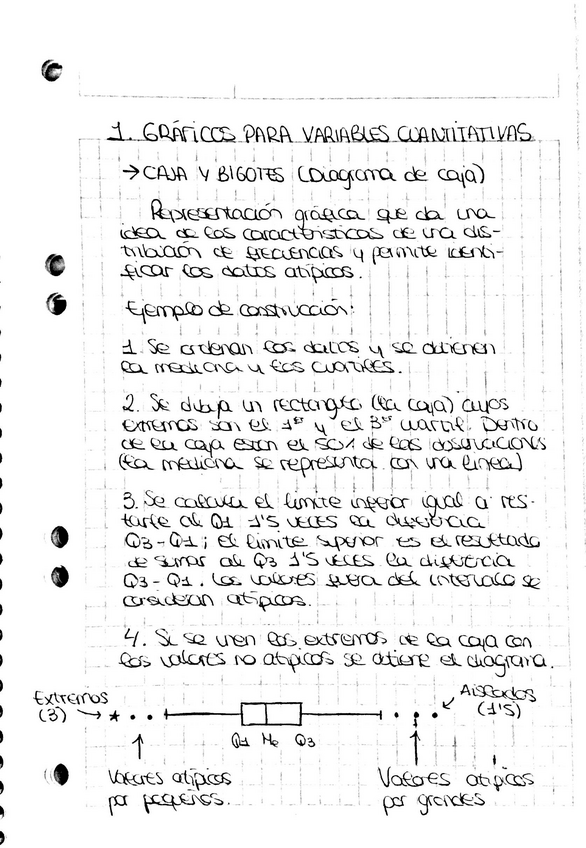 1. GRÁFICOS PARA VARIABLES CUANTITATIVAS
→ CAJA Y BIGOTES (Diagrama de caja)
Representación gráfica que da una
idea de las características de una dis-
tribución de frecuencias y permite identi-
ficar los datos atípicos.
Ejemplo de construcción:
1. Se ordenan los datos y se obtienen
la mediana y los cuartiles.
2. Se dibuja un rectángulo (la caja) cuyos
extremos son el 1er y el 3er cuartil. Dentro
de la caja están el 50% de las observaciones
(la mediana se representa con una línea)
3. Se calcula el límite inferior igual a res-
tarle al Q1 1'5 veces la distancia
Q3-Q1; el límite superior es el resultado
de sumar al Q3 1'5 veces la distancia
Q3-Q1. Los valores fuera del intervalo se
consideran atípicos.
4. Si se unen los extremos de la caja con
los valores no atípicos se obtiene el diagrama.
Extremos
(3) →
Aislados
(1'5)
Q1 Me Q3
Valores atípicos
por pequeños.
Valores atípicos
por grandes